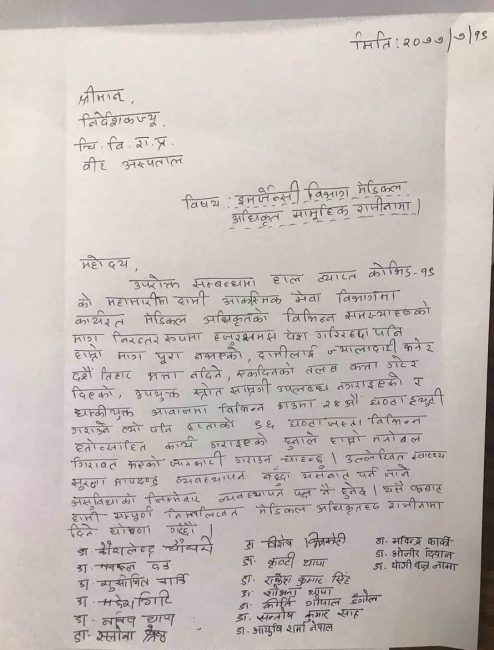 मिति : २०७७/७/१९
श्रीमान्,
निर्देशकज्यू,
चि. वि. रा. प्र.
वीर अस्पताल
विषय : इमर्जेन्सी विभाग मेडिकल
अधिकृत सामूहिक राजीनामा।
महोदय,
उपरोक्त सम्बन्धमा हाल व्याप्त कोभिड-१९
को महामारीमा हामी आकस्मिक सेवा विभागमा
कार्यरत मेडिकल अधिकृतको विभिन्न समस्याहरुको
माग निरन्तर रुपमा हजुरसमक्ष पेश गरिरहदा पनि
हाम्रो माग पुरा नभएको, हामीलाई ज्यालादारी भनेर
दशैं तिहार भत्ता नदिने, एकदिनको तलब कटा गरेर
दिएको, उपयुक्त स्रोत सामग्री उपलब्ध नगराइएको र
धम्कीयुक्त आवाजमा विभिन्न २४ औं घण्टा ड्युटी
गराउने त्यो पनि हप्ताको ६६ घण्टा विभिन्न
हतोत्साहित कार्य गराइएको हुनाले हाम्रो मनोबल
गिरावट भएको जानकारी गराउन चाहन्छु। उल्लेखित स्वास्थ्य
सुरक्षा मापदण्ड व्यवस्थापन नहुँदा यसबाट पर्न जाने
असुविधाको जिम्मेवार व्यवस्थापन पक्ष नै हुनेछ।
हामी सम्पूर्ण निम्नलिखित मेडिकल अधिकृतहरु राजीनामा
दिने घोषणा गर्दछौं।
डा. शैलेन्द्र चौधरी
डा.
डा. सुशोभित
डा. महेश गिरि
डा. नविन थापा
डा. श्रेष्ठ
डा विशेष
डा. कुन्ती थापा
डा. राकेश कुमार सिंह
डा. शोभना थापा
डा. कीर्ति गोपाल डंगोल
डा. सन्तोष कुमार साह
डा. आयुषि शर्मा नेपाल
डा. मविन्द्र कार्की
डा. भोजीर दिवान
डा. योगी